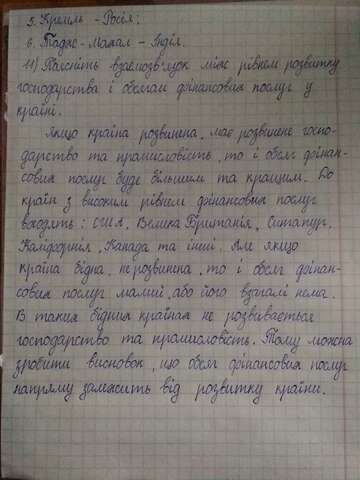 5. Кремль - Росія;
6. Тадж-Махал - Індія.
11) Поясніть взаємозв'язок між рівнем розвитку
господарства і обсягом фінансових послуг у
країні.
Якщо країна розвинена, має розвинене госпо-
дарство та промисловість, то і обсяг фінан-
сових послуг буде більшим та кращим. До
країн з високим рівнем фінансових послуг
входять: США, Велика Британія, Сингапур,
Каліфорнія, Канада та інші. Але якщо
країна бідна, нерозвинена, то і обсяг фінан-
сових послуг малий, або його взагалі нема.
В таких бідних країнах не розвивається
господарство та промисловість. Тому можна
зробити висновок, що обсяг фінансових послуг
напряму залежить від розвитку країни.